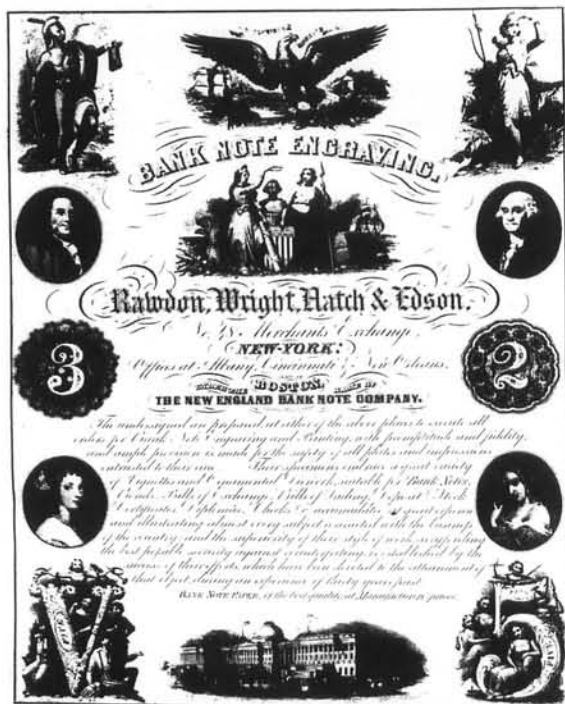 BANK NOTE ENGRAVING.
Rawdon, Wright, Hatch & Edson.
No. 48 Merchants Exchange
NEW-YORK:
Offices at Albany, Cincinnati & New Orleans.
3
2
BOSTON,
UNDER THE NAME OF
THE NEW ENGLAND BANK NOTE COMPANY.
The undersigned are prepared, at either of the above places to execute all
orders for Bank Note Engraving and Printing, with promptitude and fidelity,
and ample provision is made for the safety of all plates and impressions
entrusted to their care Their specimens embrace a great variety
of Vignettes and Ornamental Diework, suitable for Bank Notes,
Bonds, Bills of Exchange, Bills of Lading, Deposit & Stock
Certificates, Diplomas, Checks &c accumulated at great expense
and illustrating almost every subject connected with the business
of the country; and the superiority of their style of work in affording
the best possible security against counterfeiting, is established by the
success of their efforts which have been devoted to the attainment of
that object, during an experience of thirty years past
BANK NOTE PAPER, of the best quality, at Manufacturers prices.
V
5